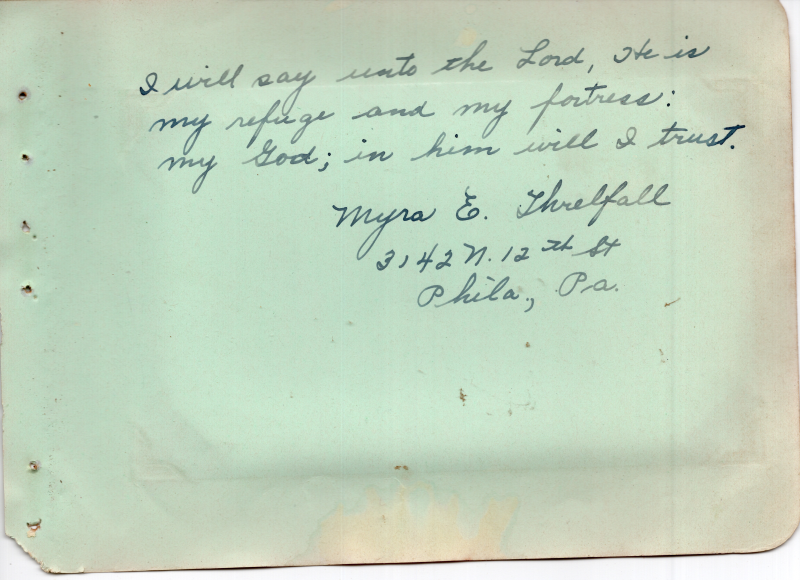 I will say unto the Lord, He is
my refuge and my fortress:
my God; in him will I trust.
Myra E. Threlfall
3142 N. 12th St
Phila., Pa.